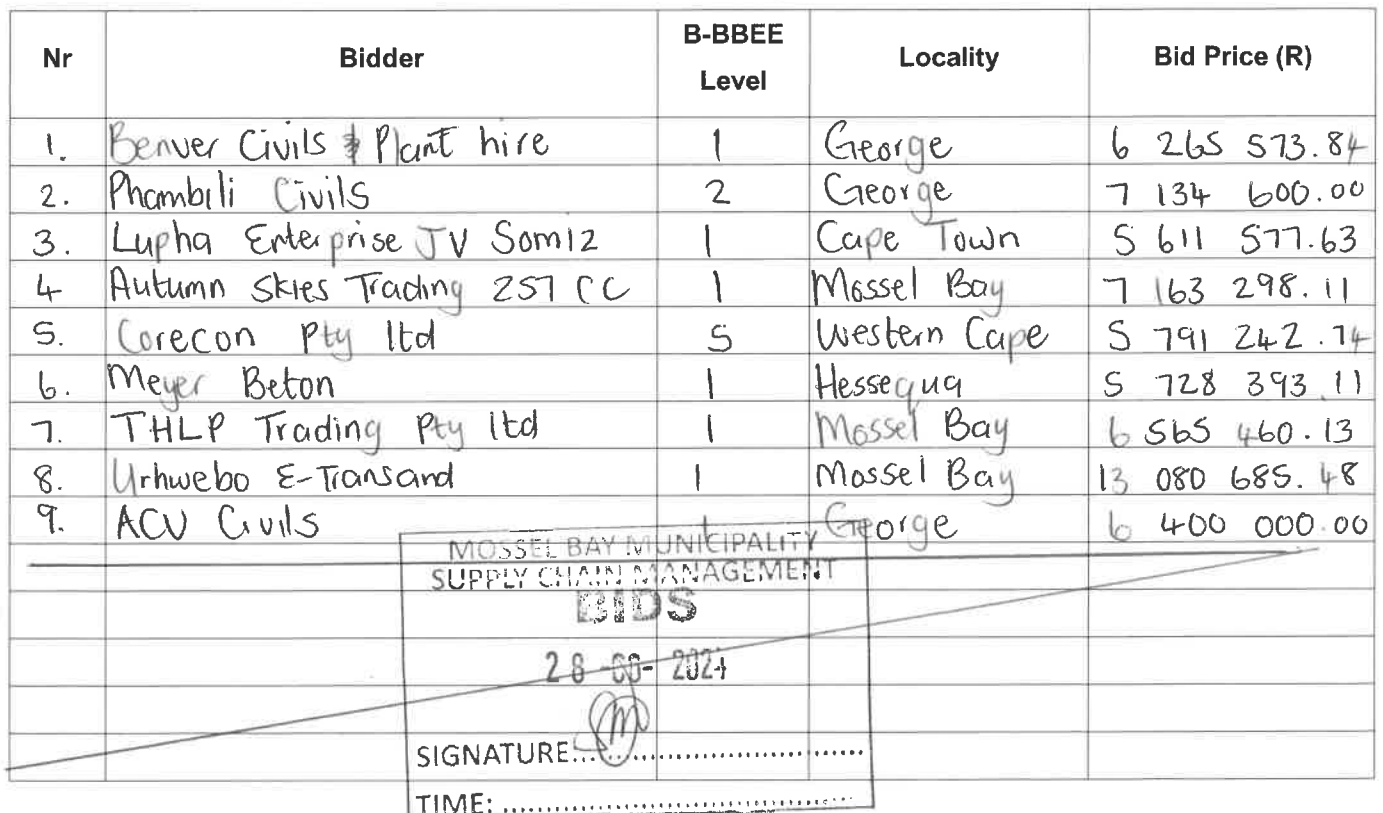 Nr Bidder B-BBEE Level Locality Bid Price (R)
1. Benver Civils & Plant hire 1 George 6 265 573.84
2. Phambili Civils 2 George 7 134 600.00
3. Lupha Enterprise JV Somiz 1 Cape Town 5 611 577.63
4 Autumn Skies Trading 257 CC 1 Mossel Bay 7 163 298.11
5. Corecon Pty ltd 5 Western Cape 5 791 242.74
6. Meyer Beton 1 Hessequa 5 728 393.11
7. THLP Trading Pty ltd 1 Mossel Bay 6 565 460.13
8. Urhwebo E-Transand 1 Mossel Bay 13 080 685.48
9. ACV Civils 1 George 6 400 000.00
MOSSEL BAY MUNICIPALITY
SUPPLY CHAIN MANAGEMENT
BIDS
2024
SIGNATURE:
TIME: